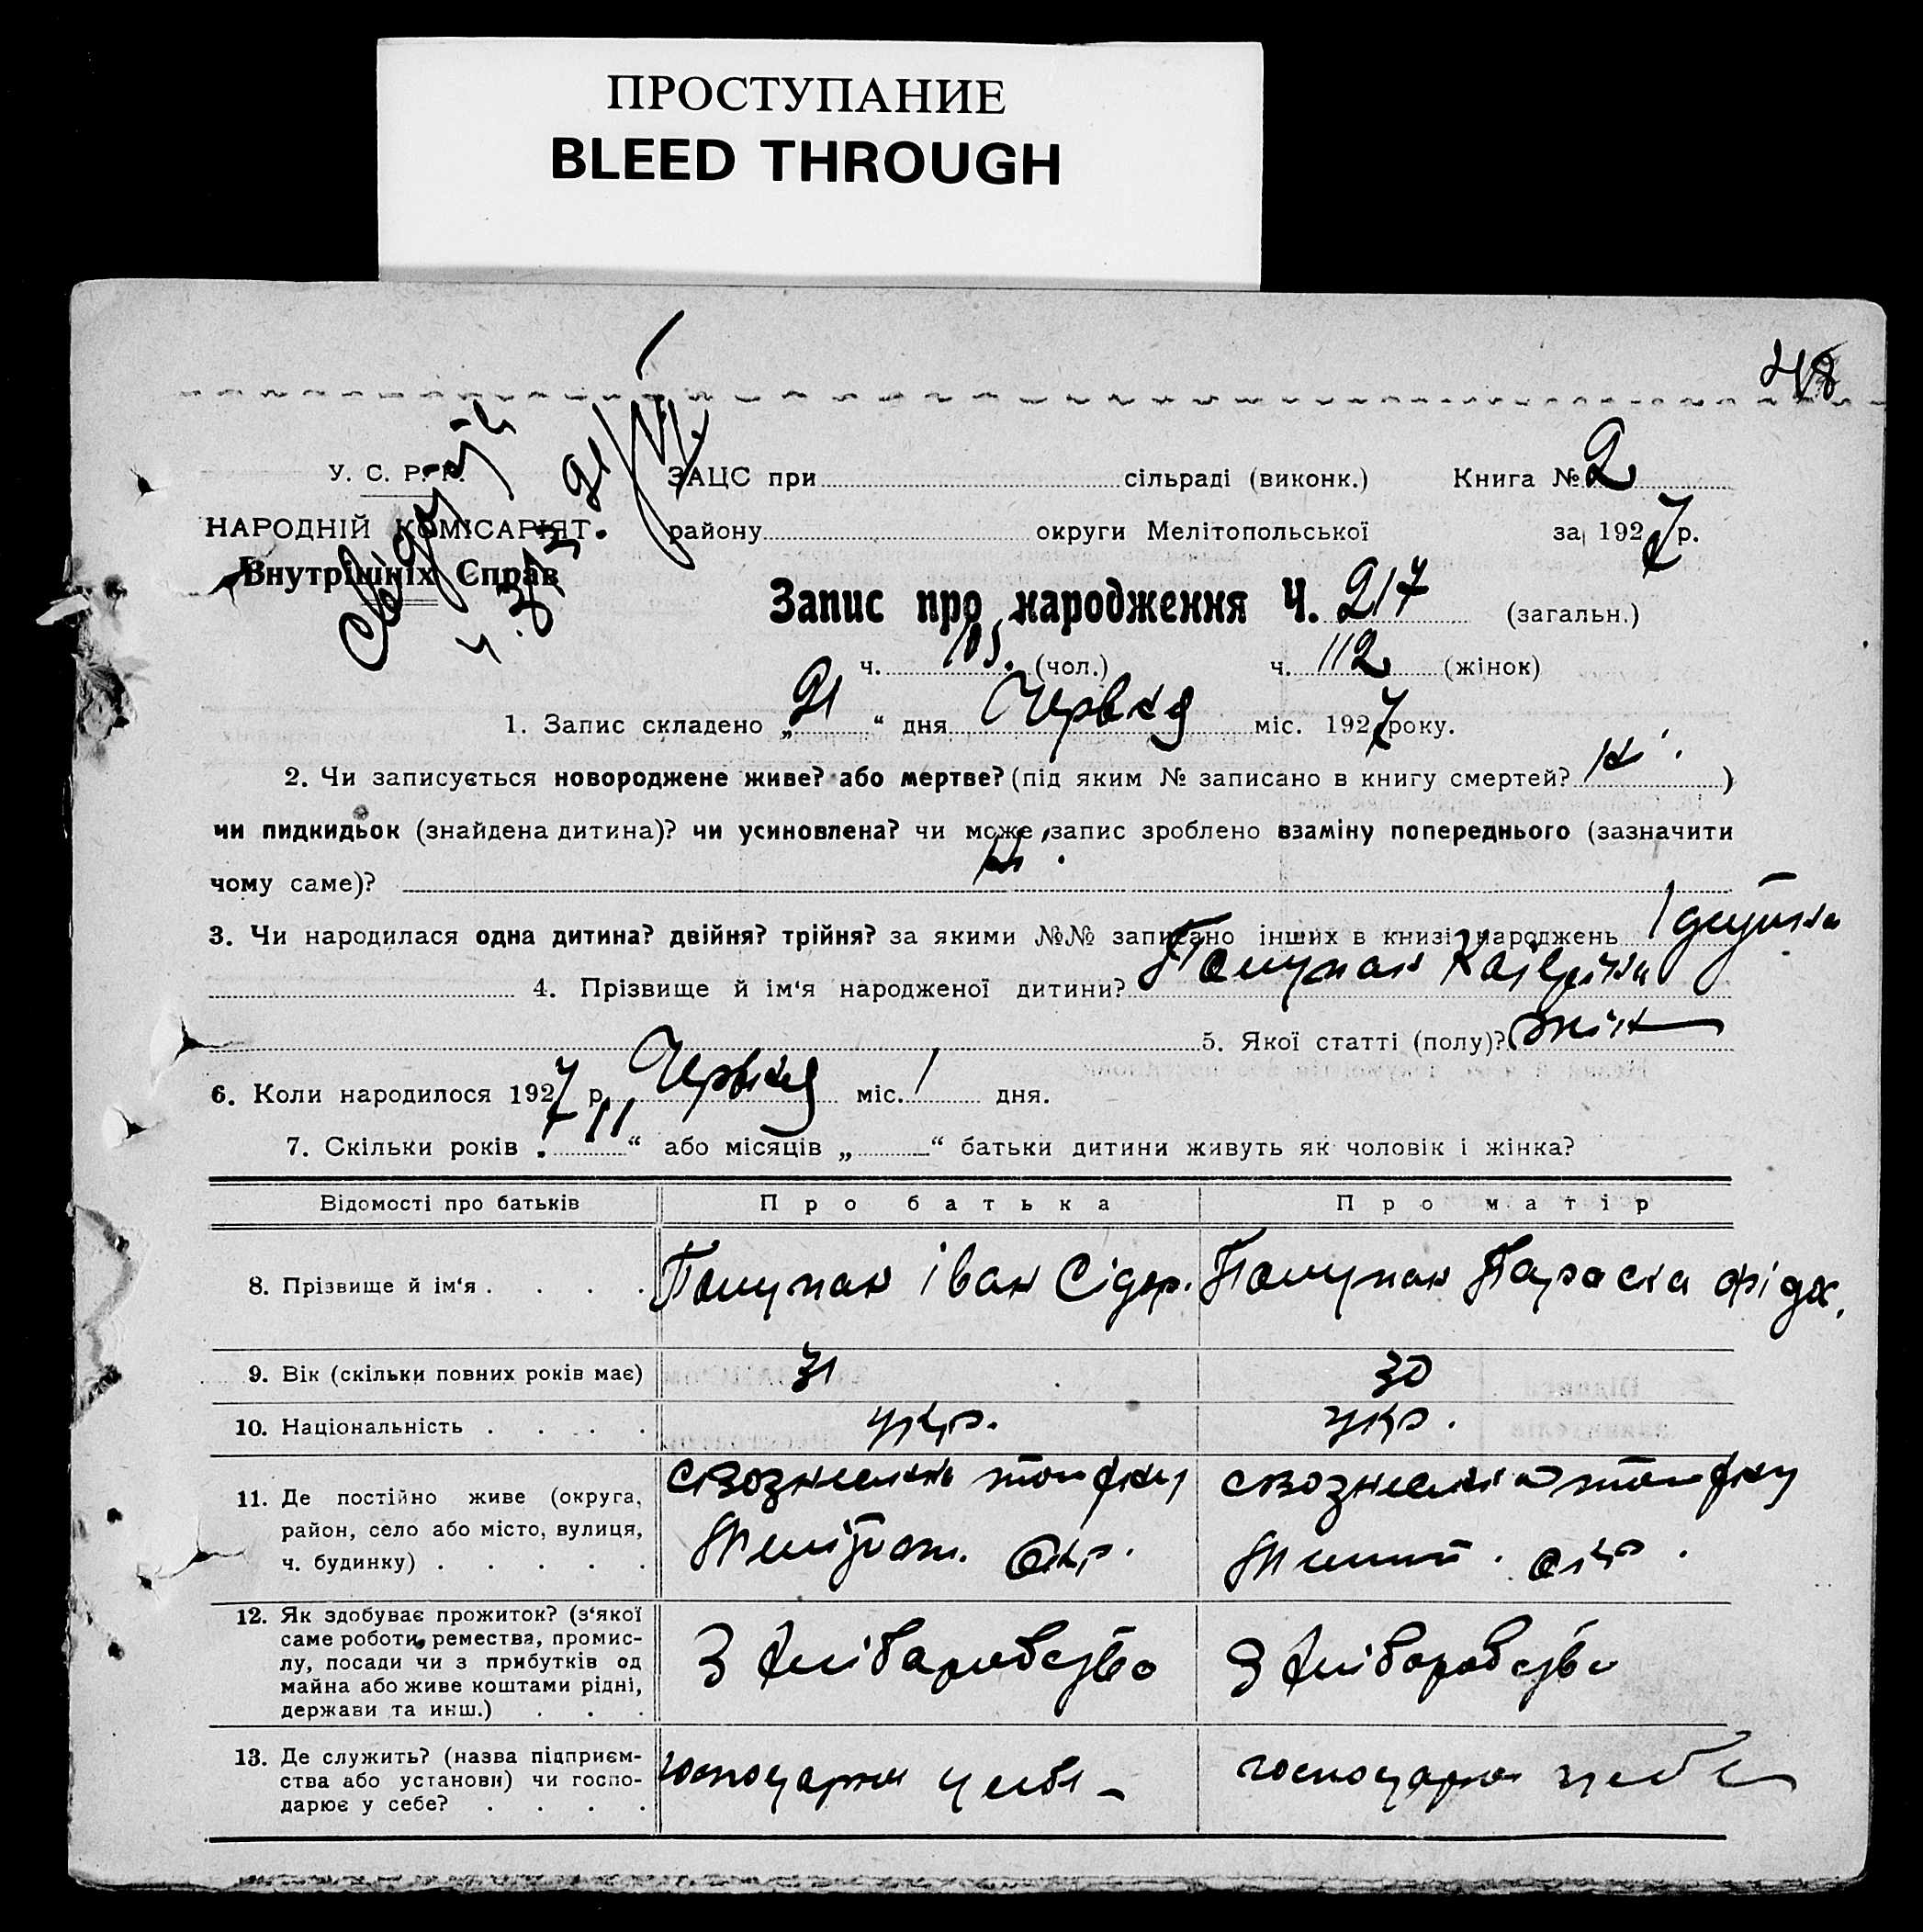 ПРОСТУПАНИЕ
BLEED THROUGH
48
У. С. Р. Р.
НАРОДНІЙ КОМІСАРІЯТ
Внутрішніх Справ
ЗАЦС при сільраді (виконк.) Книга № 2
району округи Мелітопольської за 1927 р.
Запис про народження Ч. 217 (загальн.)
ч. 105. (чол.) ч. 112 (жінок)
1. Запис складено „21“ дня Червня міс. 1927 року.
2. Чи записується новороджене живе? або мертве? (під яким № записано в книгу смертей? ні.)
чи пидкидьок (знайдена дитина)? чи усиновлена? чи може запис зроблено взаміну попереднього (зазначити
чому саме)? ні.
3. Чи народилася одна дитина? двійня? трійня? за якими №№ записано інших в книзі народжень 1 дитина
4. Прізвище й ім‘я народженої дитини?
5. Якої статті (полу)? жін
6. Коли народилося 1927 р. Червня міс. 1 дня.
7. Скільки років „11“ або місяців „ “ батьки дитини живуть як чоловік і жінка?
Відомості про батьків Про батька Про матір
8. Прізвище й ім‘я . . . . Іван Сідор. Параска
9. Вік (скільки повних років має) 31 30
10. Національність . . . . . укр. укр.
11. Де постійно живе (округа,
район, село або місто, вулиця,
ч. будинку) . . . . . Меліт. Окр. окр.
12. Як здобуває прожиток? (з‘якої
саме роботи, ремества, промис-
лу, посади чи з прибутків од
майна або живе коштами рідні,
держави та инш.) . . . З хліборобства З хліборобства
13. Де служить? (назва підприєм-
ства або установи) чи госпо-
дарює у себе? . . . . господарює у себе господарює у себе